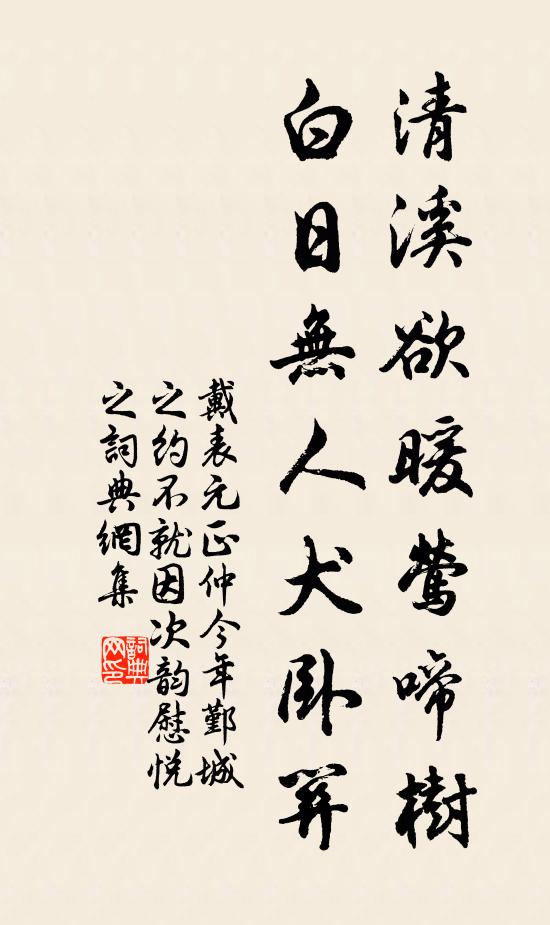 清溪欲暖鶯啼樹
白日無人犬臥
戴表元正仲今年鄞城
之約不就因次韵慰悅
之詞典網集
詞典
网印